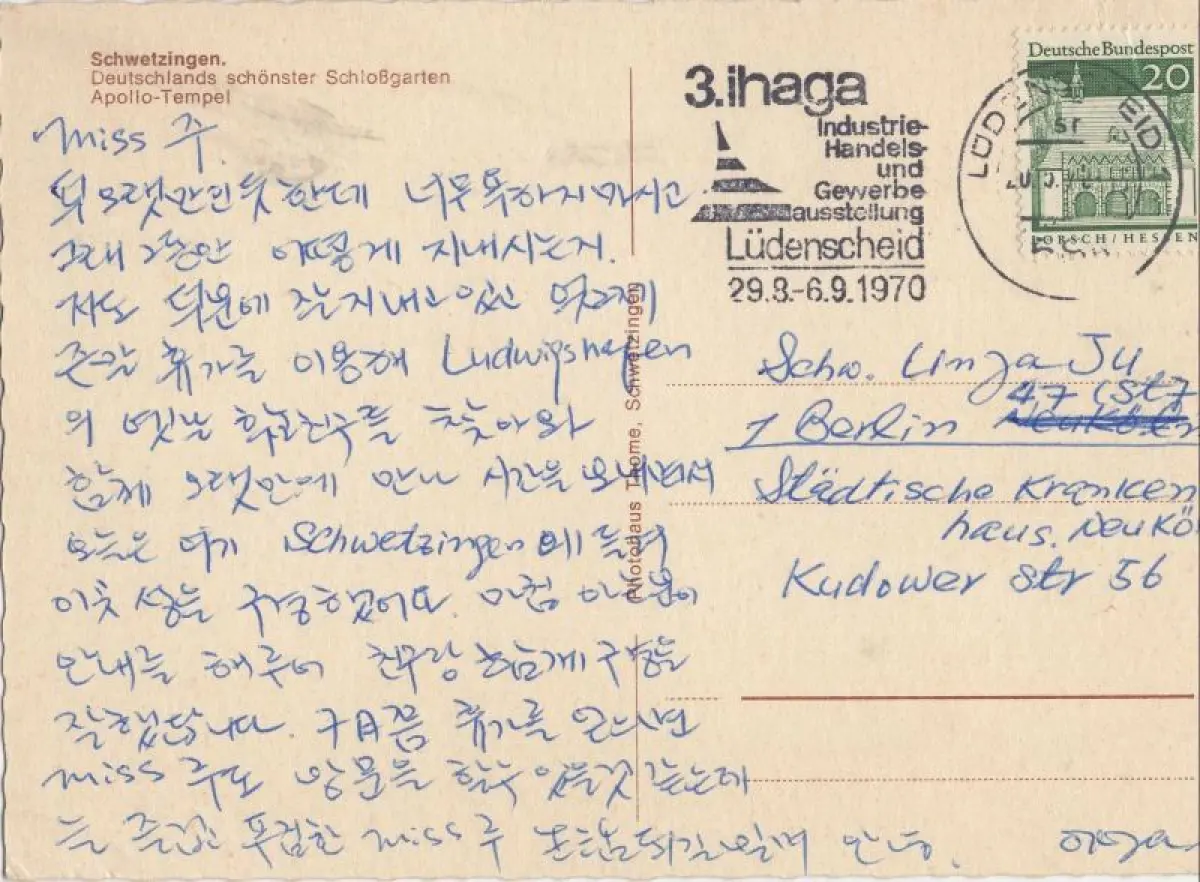 Schwetzingen.
Deutschlands schönster Schloßgarten
Apollo-Tempel
Miss 주.
퍽 오랫만인듯 한데 너무 욕하지 마시고
그래 그동안 어떻게 지내시는지.
저도 덕분에 잘 지내고 있고
주말 휴가를 이용해 Ludwigshafen
의 옛날 학교친구를 찾아와
함께 오랫만에 만나 시간을 보내면서
오늘은 여기 Schwetzingen에 들려
이곳 성을 구경했어요. 마침 아는분이
안내를 해주어 친구랑 흥겹게 구경을
잘했답니다. 구月쯤 휴가를 얻으면
Miss 주도 방문을 할수 있을것 같은데
늘 즐겁고 Miss 주 되길 빌며 안녕.
Photohaus Thome, Schwetzingen
3.ihaga
Industrie-
Handels-
und
Gewerbe
ausstellung
Lüdenscheid
29.8.-6.9.1970
LÜDENSCHEID
Deutsche Bundespost
20
LORSCH/HESSEN
Schw. Unja Ju
47 (St7
1 Berlin Neuköln
Städtische Kranken
haus. Neukö
Kudower Str 56